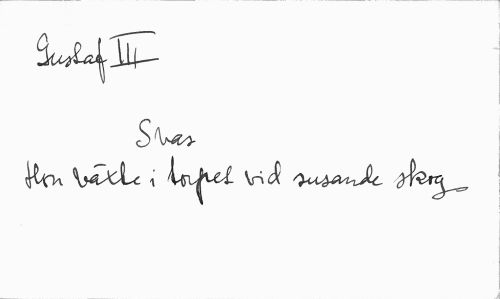 Gustaf III
Svar
Hon växte i torpet vid susande skog